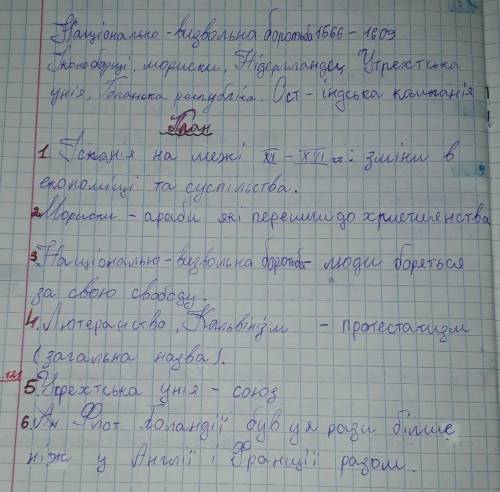 Національно-визвольна боротьба 1566 - 1609
Іконоборці, мориски, Нідерландец Утрехтська
унія, Голанска республіка. Ост-індська компанія
План
1. Іспанія на межі XI - XVI ст: зміни в
економіці та суспільства.
2. Мориски - араби які перейшли до християнства
3. Національно-визвольна боротьба - люди боряться
за свою свободу.
4. Лютеранство, Кальвінізм - протестатизм
(загальна назва).
5. Утрехтська унія - союз
6. Ан Флот Голандії був у рази більше
ніж у Англії і Франції разом.